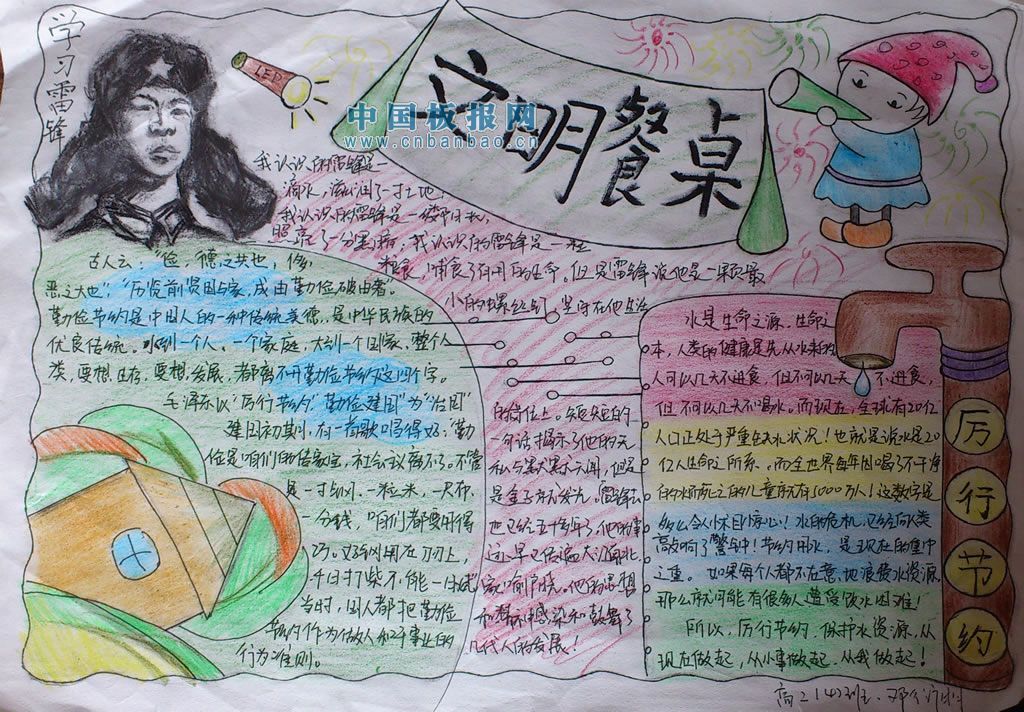 学习雷锋
LED
中国板报网
www.cnbanbao.cn
文明餐桌
我认识的雷锋是一
滴水，滋润了一寸土地
我认识的雷锋是一缕阳光，
照亮了一分黑暗；我认识的雷锋是一粒
粮食，哺育了有用的生命。但是雷锋说他是一颗最
小的螺丝钉，坚守在他自治
的岗位上。短短的
一句话揭示了他的无
私与其大其示六闻，但是
是金子就发光。雷锋去
也已经五十年了，他的事
迹早已传遍大江南北，
家喻户晓。他的思想
和精神感染和鼓舞了
几代人的发展！
古人云："俭，德之共也，侈，
恶之大也"；"历览前贤国与家，成由勤俭破由奢"。
勤俭节约是中国人的一种传统美德，是中华民族的
优良传统。小到一个人、一个家庭，大到一个国家、整个人
类，要想生存，要想发展，都离不开勤俭节约这四个字。
毛泽东以"厉行节约，勤俭建国"为"治国"
建国初期，有一首歌唱得好："勤
俭是咱们的传家宝，社会议离不了。不管
是一寸钢、一粒米、一尺布、
一分钱，咱们都要用得
巧。好钢用在刀刃上，
千日打柴不能一日烧"
当时，国人都把勤俭
节约作为做人和干事业的
行为准则。
水是生命之源、生命之
本，人类的健康是先从水来的
人可以几天不进食，但不可以几天不进食，
但不可以几天不喝水。而现在，全球有20亿
人口正处于严重在水状况！也就是说水是20
亿人生命之所系。而全世界每年因喝了不干净
的水而死亡的儿童就有5000万人！这数字是
多么令人怵目惊心！水的危机，已经向人类
敲响了警钟！节约用水，是现在的重中
之重。如果每个人都不在意，地浪费水资源
那么就可能有很多人遭受饮水困难！
所以，厉行节约，保护水资源，从
现在做起，从小事做起，从我做起！
厉行节约
高二14班